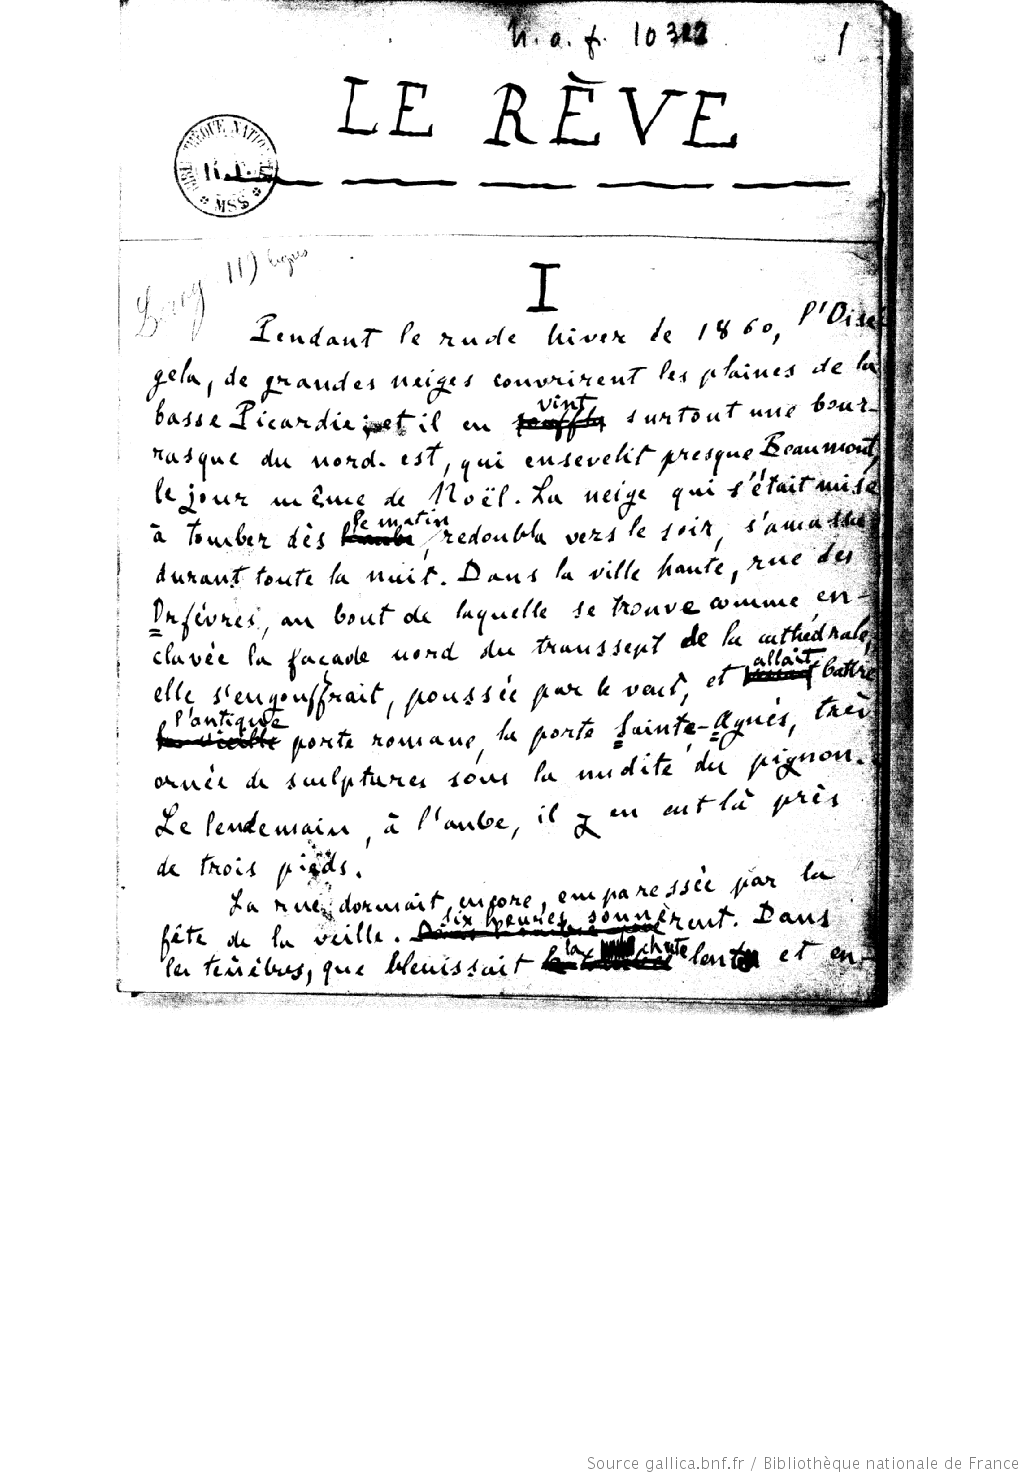 n. a. f. 10323
1
LE RÈVE
BIBLIOTHÈQUE NATIONALE
R.F.
MSS
Leroy 111) lignes
I
Pendant le rude hiver de 1860, l'Oise
gela, de grandes neiges couvrirent les plaines de la
vint
basse Picardie; et il en souffla surtout une bour-
rasque du nord-est, qui ensevelit presque Beaumont,
le jour même de Noël. La neige qui s'était mise
le matin
à tomber dès l'aube, redoubla vers le soir, s'amassa
durant toute la nuit. Dans la ville haute, rue des
Orfèvres, au bout de laquelle se trouve comme en-
clavée la façade nord du transsept de la cathédrale,
allait
elle s'engouffrait, poussée par le vent, et battre
l'antique
la vieille porte romane, la porte Sainte-Agnès, très
ornée de sculptures sous la nudité du pignon.
Le lendemain, à l'aube, il y en eut là près
de trois pieds.
La rue dormait encore, emparessée par la
six heures sonnèrent. Dans
fête de la veille.
la chute
les ténèbres, que bleuissait lente et en-
Source gallica.bnf.fr / Bibliothèque nationale de France